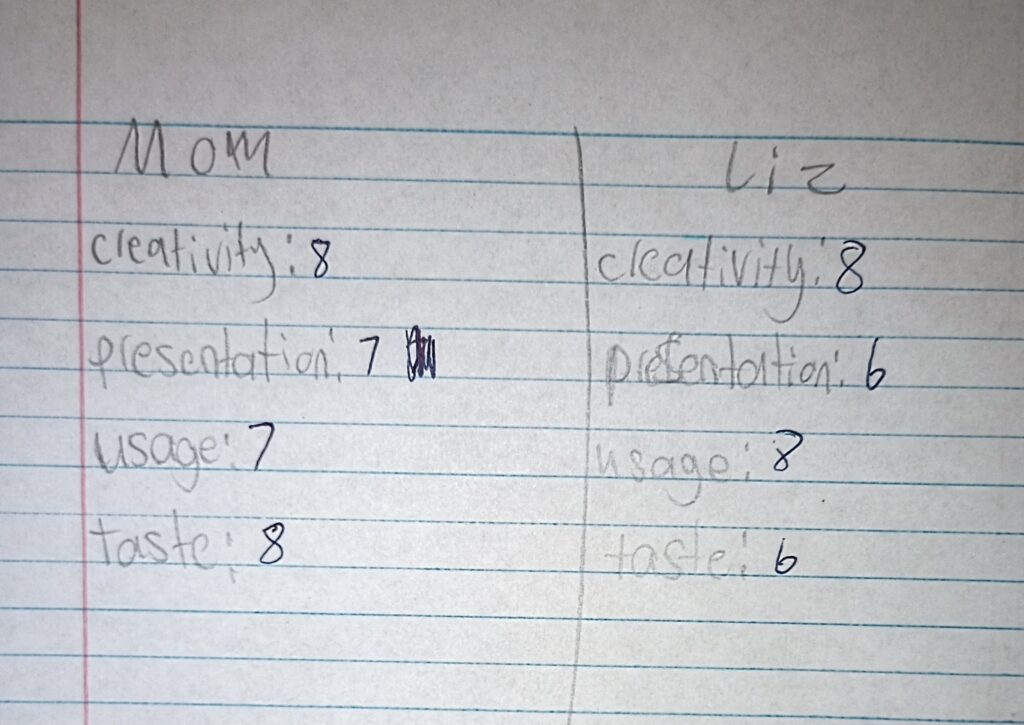 Mom
creativity: 8
presentation: 7
usage: 7
taste: 8
Liz
creativity: 8
presentation: 6
usage: 8
taste: 6